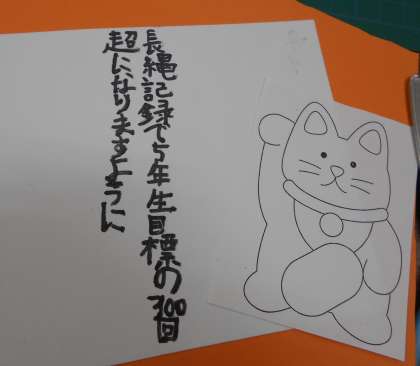 長縄記録で5年生目標の300回
超になりますように